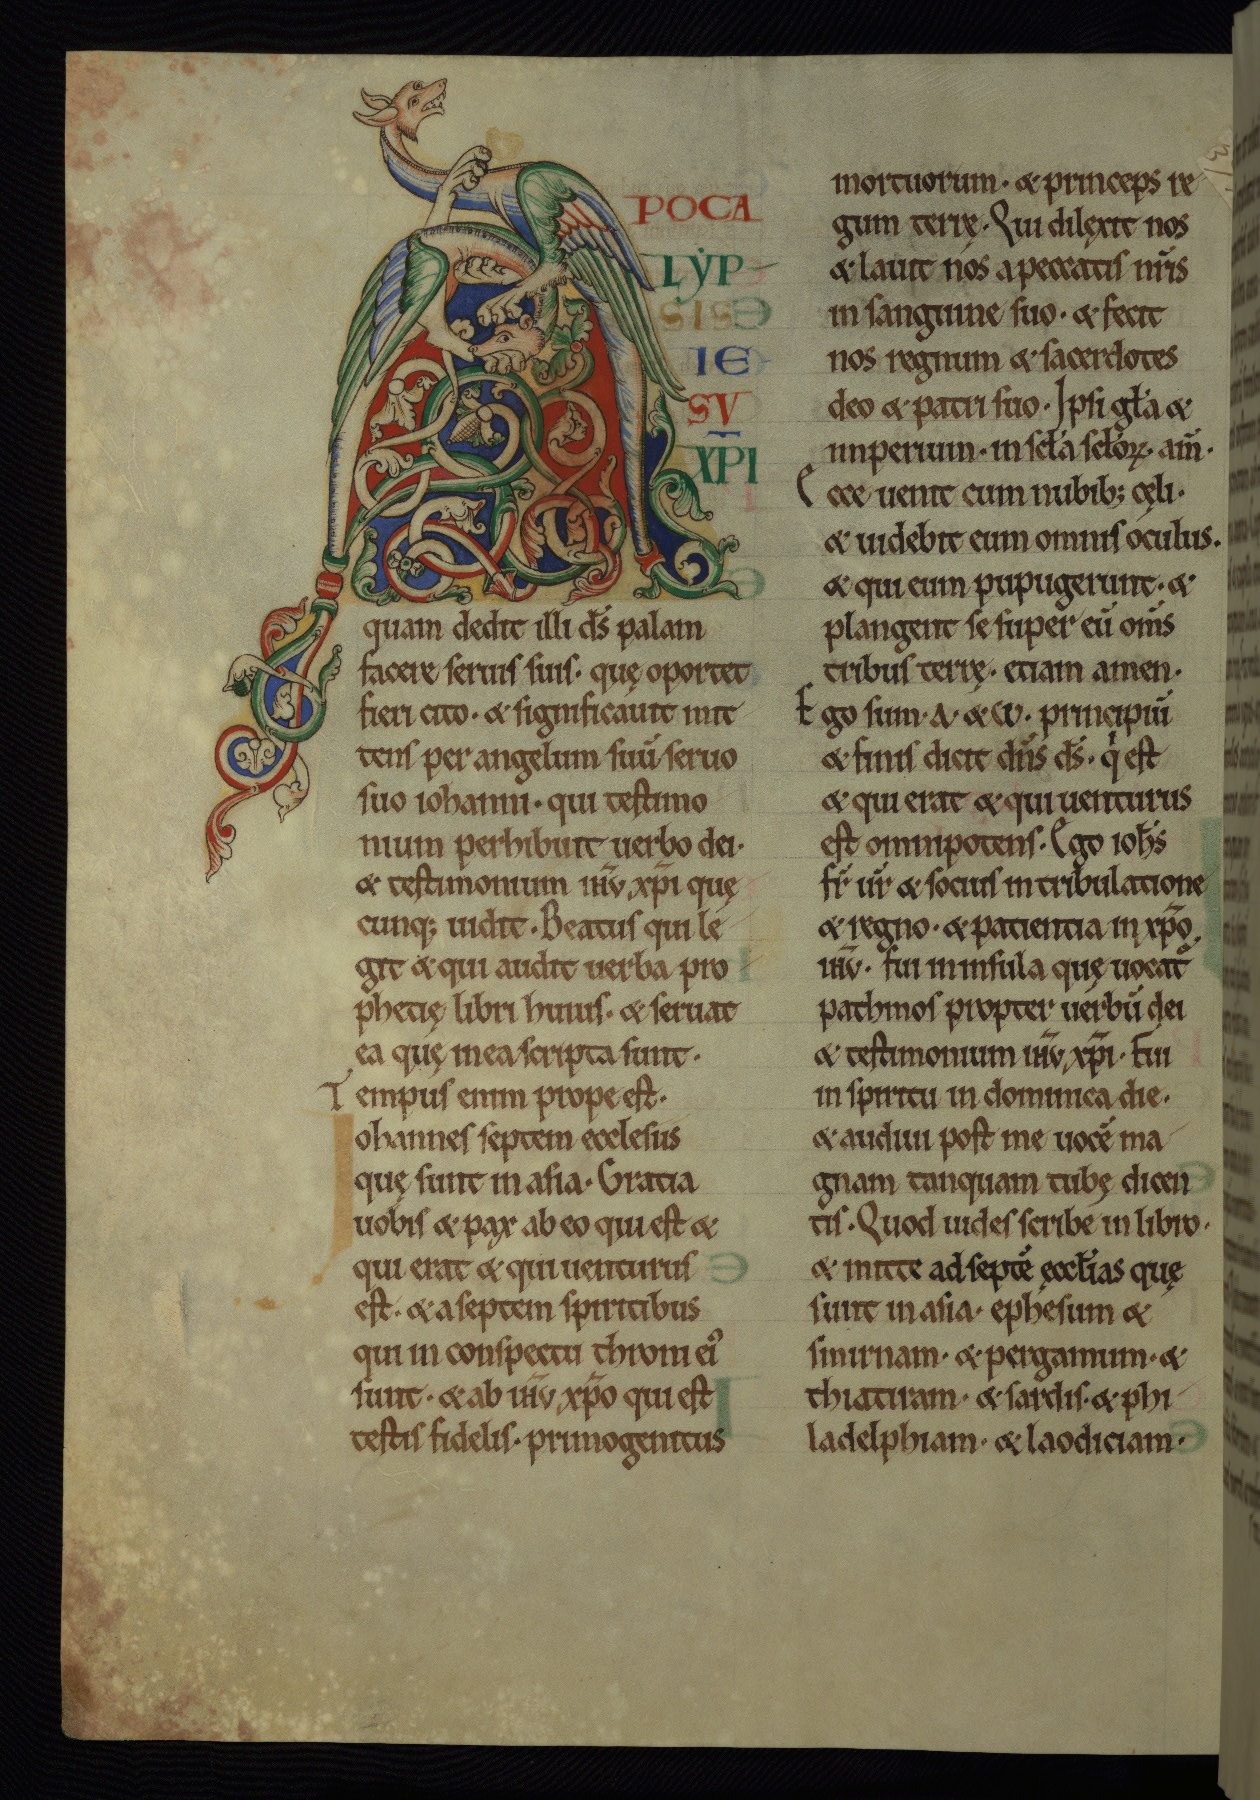 A
POCA
LẏP
SIS
IE
SV
XP̅I
quam dedit illi d̅s palam
facere seruis suis· quę oportet
fieri cito· & significauit mit
tens per angelum suu̅ seruo
suo iohanni· qui testimo
nium perhibuit uerbo dei·
& testimonium ih̅v xp̅i quę
cunq; uidit· Beatus qui le
git & qui audit uerba pro
phetię libri huius· & seruat
ea quę in ea scripta sunt·
Tempus enim prope est·
Iohannes septem ecclesiis
quę sunt in asia· Gratia
uobis & pax ab eo qui est &
qui erat & qui uenturus
est· & a septem spiritibus
qui in conspectu throni ei᾿
sunt· & ab ih̅v xp̅o qui est
testis fidelis· primogenitus
mortuorum· & princeps re
gum terrę· Qui dilexit nos
& lauit nos a peccatis nr̅is
in sanguine suo· & fecit
nos regnum & sacerdotes
deo & patri suo· Ipsi gl̅a &
imperium· in scl̅a scl̅oꝝ· am̅·
Ecce uenit cum nubib; cęli·
& uidebit eum omnis oculus·
& qui eum pupugerunt· &
plangent se super eu̅ om̅s
tribus terrę· etiam amen·
Ego sum·A·& ω· principiu̅
& finis dicit dn̅s d̅s· q̍ est
& qui erat & qui uenturus
est omnipotens· Ego ioh̅s
fr̅ ur̅ & socius in tribulatione
& regno· & patientia in xp̅o
ih̅v· fui in insula quę uocat᷑
pathmos propter uerbu̅ dei
& testimonium ih̅v xp̅i· Fui
in spiritu in dominica die·
& audiui post me uoce̅ ma
gnam tanquam tubę dicen
tis· Quod uides scribe in libro·
& mitte ad septe̅ ęccl̅ias quę
sunt in asia· ephesum &
smirnam· & pergamum· &
thiatiram· & sardis· & phi
ladelphiam· & laodiciam·